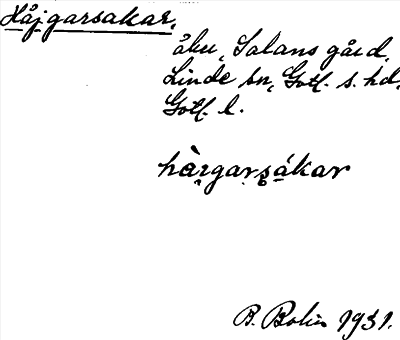 Håjgarsakar,
åker, Salans gård,
Linde sn, Gotl. s. hd,
Gotl. l.
hàrgarsákar
B. Bolin 1931.